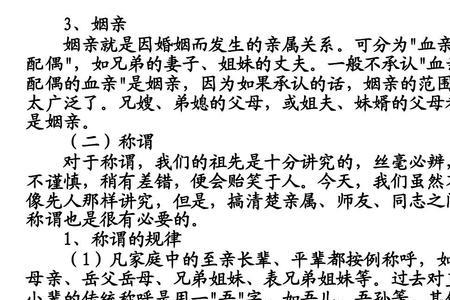 3、姻亲
姻亲就是因婚姻而发生的亲属关系。可分为"血亲
配偶"，如兄弟的妻子、姐妹的丈夫。一般不承认"血亲
配偶的血亲"是姻亲，因为如果承认的话，姻亲的范围
太广泛了。兄嫂、弟媳的父母，或姐夫、妹婿的父母
是姻亲。
（二）称谓
对于称谓，我们的祖先是十分讲究的，丝毫必辨，
不谨慎，稍有差错，便会贻笑于人。今天，我们虽然
像先人那样讲究，但是，搞清楚亲属、师友、同志之
称谓也是很有必要的。
1、称谓的规律
（1）凡家庭中的至亲长辈、平辈都按例称呼，如
母亲、岳父岳母、兄弟姐妹、表兄弟姐妹等。过去对
小辈的传统称呼是用一"吾"字，如吾儿、吾孙等，其